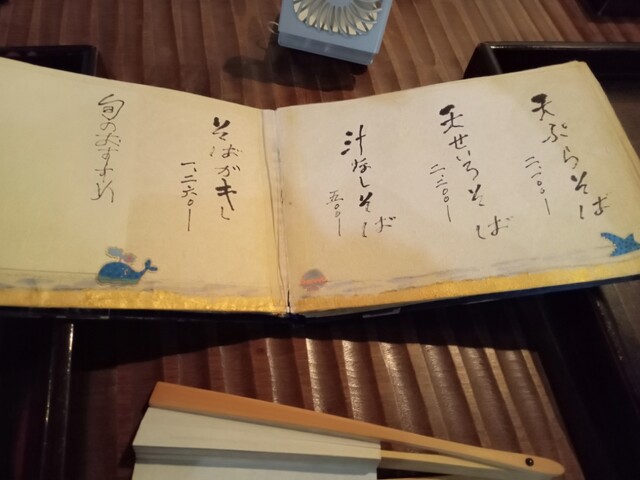 天ぷらそば
二、二〇〇ー
天せいろそば
二、二〇〇ー
汁なしそば
五〇〇ー
そばがキし
一、二六〇ー
旬のおすすめ